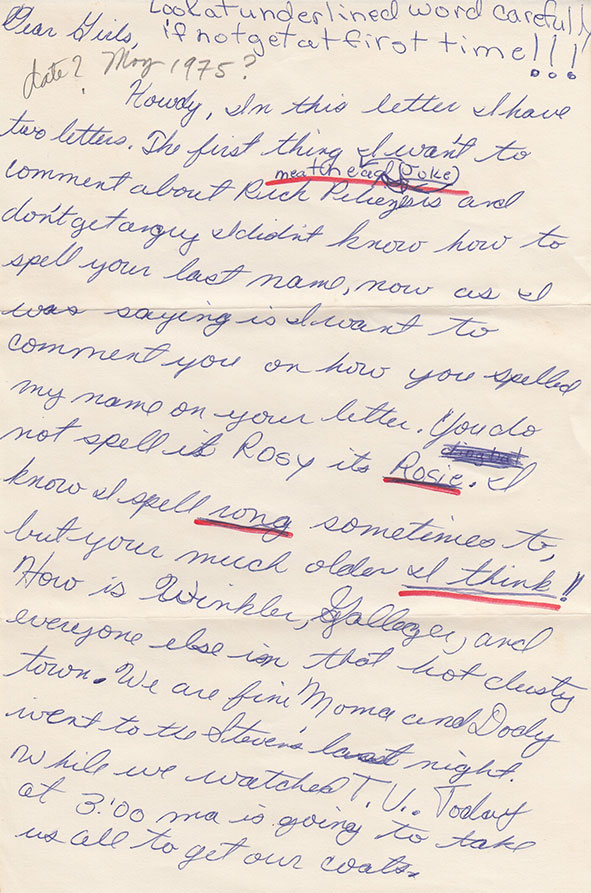 Look at underlined word carefully
if not get at first time!!!
Dear Girls,
date? May 1975?
Howdy, In this letter I have
two letters. The first thing I want to
meathead (Joke)
comment about Rich and
don't get angry I didn't know how to
spell your last name, now as I
was saying is I want to
comment you on how you spelled
my name on your letter. You do
not spell it Rosy its Rosie. I
know I spell rong sometimes to,
but your much older I think!!
How is Winkler, Gallager, and
everyone else in that hot dusty
town. We are fine Moma and Dady
went to the Steven's last night.
While we watched T.V.. Today
at 3:00 ma is going to take
us all to get our coats.